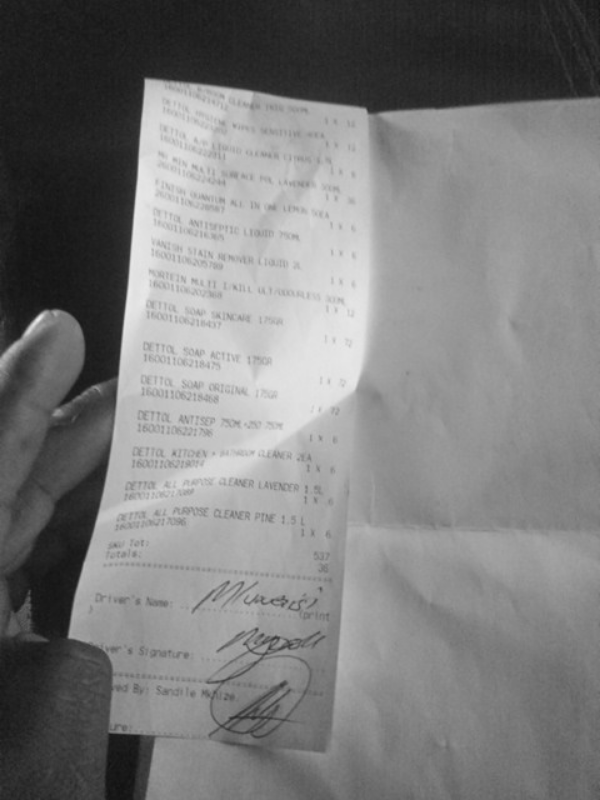 CLEANER 500ML
1 X 12
DETTOL HYGIENE WIPES SENSITIVE
1 X 12
DETTOL A/P LIQUID CLEANER CITRUS 1.5L
1 X 6
MR MIN MULTI SURFACE POL LAVENDER 300ML
FINISH QUANTUM ALL IN ONE LEMON
1 X 6
DETTOL ANTISEPTIC LIQUID 750ML
16001106216365
1 X 6
VANISH STAIN REMOVER LIQUID 2L
16001106205789
1 X 6
MORTEIN MULTI I/KILL ULT/ODOURLESS 300ML
16001106202369
1 X 12
DETTOL SOAP SKINCARE 175GR
16001106218437
1 X 72
DETTOL SOAP ACTIVE 175GR
16001106218475
1 X 72
DETTOL SOAP ORIGINAL 175GR
16001106218468
1 X 72
DETTOL ANTISEP 750ML+250 750ML
16001106221796
1 X 6
DETTOL KITCHEN + BATHROOM CLEANER 2EA
16001106218014
1 X 6
DETTOL ALL PURPOSE CLEANER LAVENDER 1.5L
16001106217089
1 X 6
DETTOL ALL PURPOSE CLEANER PINE 1.5 L
16001106217096
1 X 6
SKU Tot:
537
Totals:
36
Driver's Name:
(print
)
iver's Signature:
ved By: Sandile Mkhize
ure: